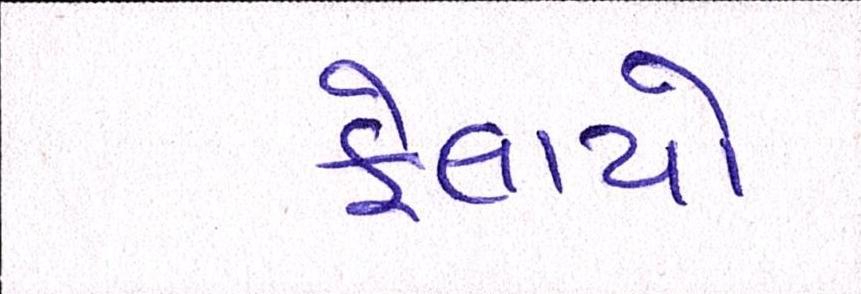 ફેલાયો